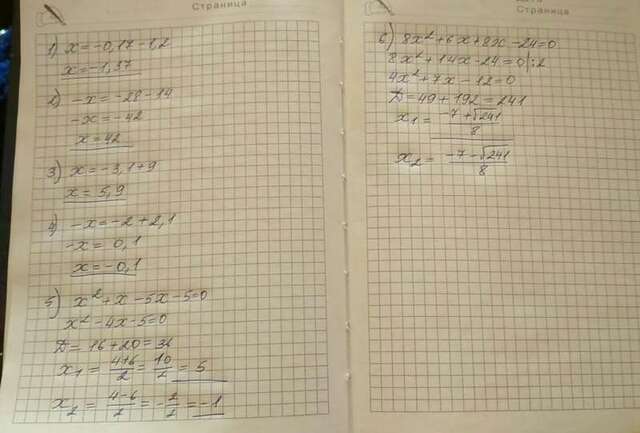 Страница
1) x = -0,17-1,2
x = -1,37
2) -x = -28-14
-x = -42
x = 42
3) x = -3,1+9
x = 5,9
4) -x = -2+2,1
-x = 0,1
x = -0,1
5) x² + x - 5x - 5 = 0
x² - 4x - 5 = 0
D = 16+20 = 36
x₁ = (4+6)/2 = 10/2 = 5
x₂ = (4-6)/2 = -2/2 = -1
Страница
6) 8x² + 6x + 8x - 24 = 0
8x² + 14x - 24 = 0 |:2
4x² + 7x - 12 = 0
D = 49 + 192 = 241
x₁ = (-7+√241)/8
x₂ = (-7-√241)/8